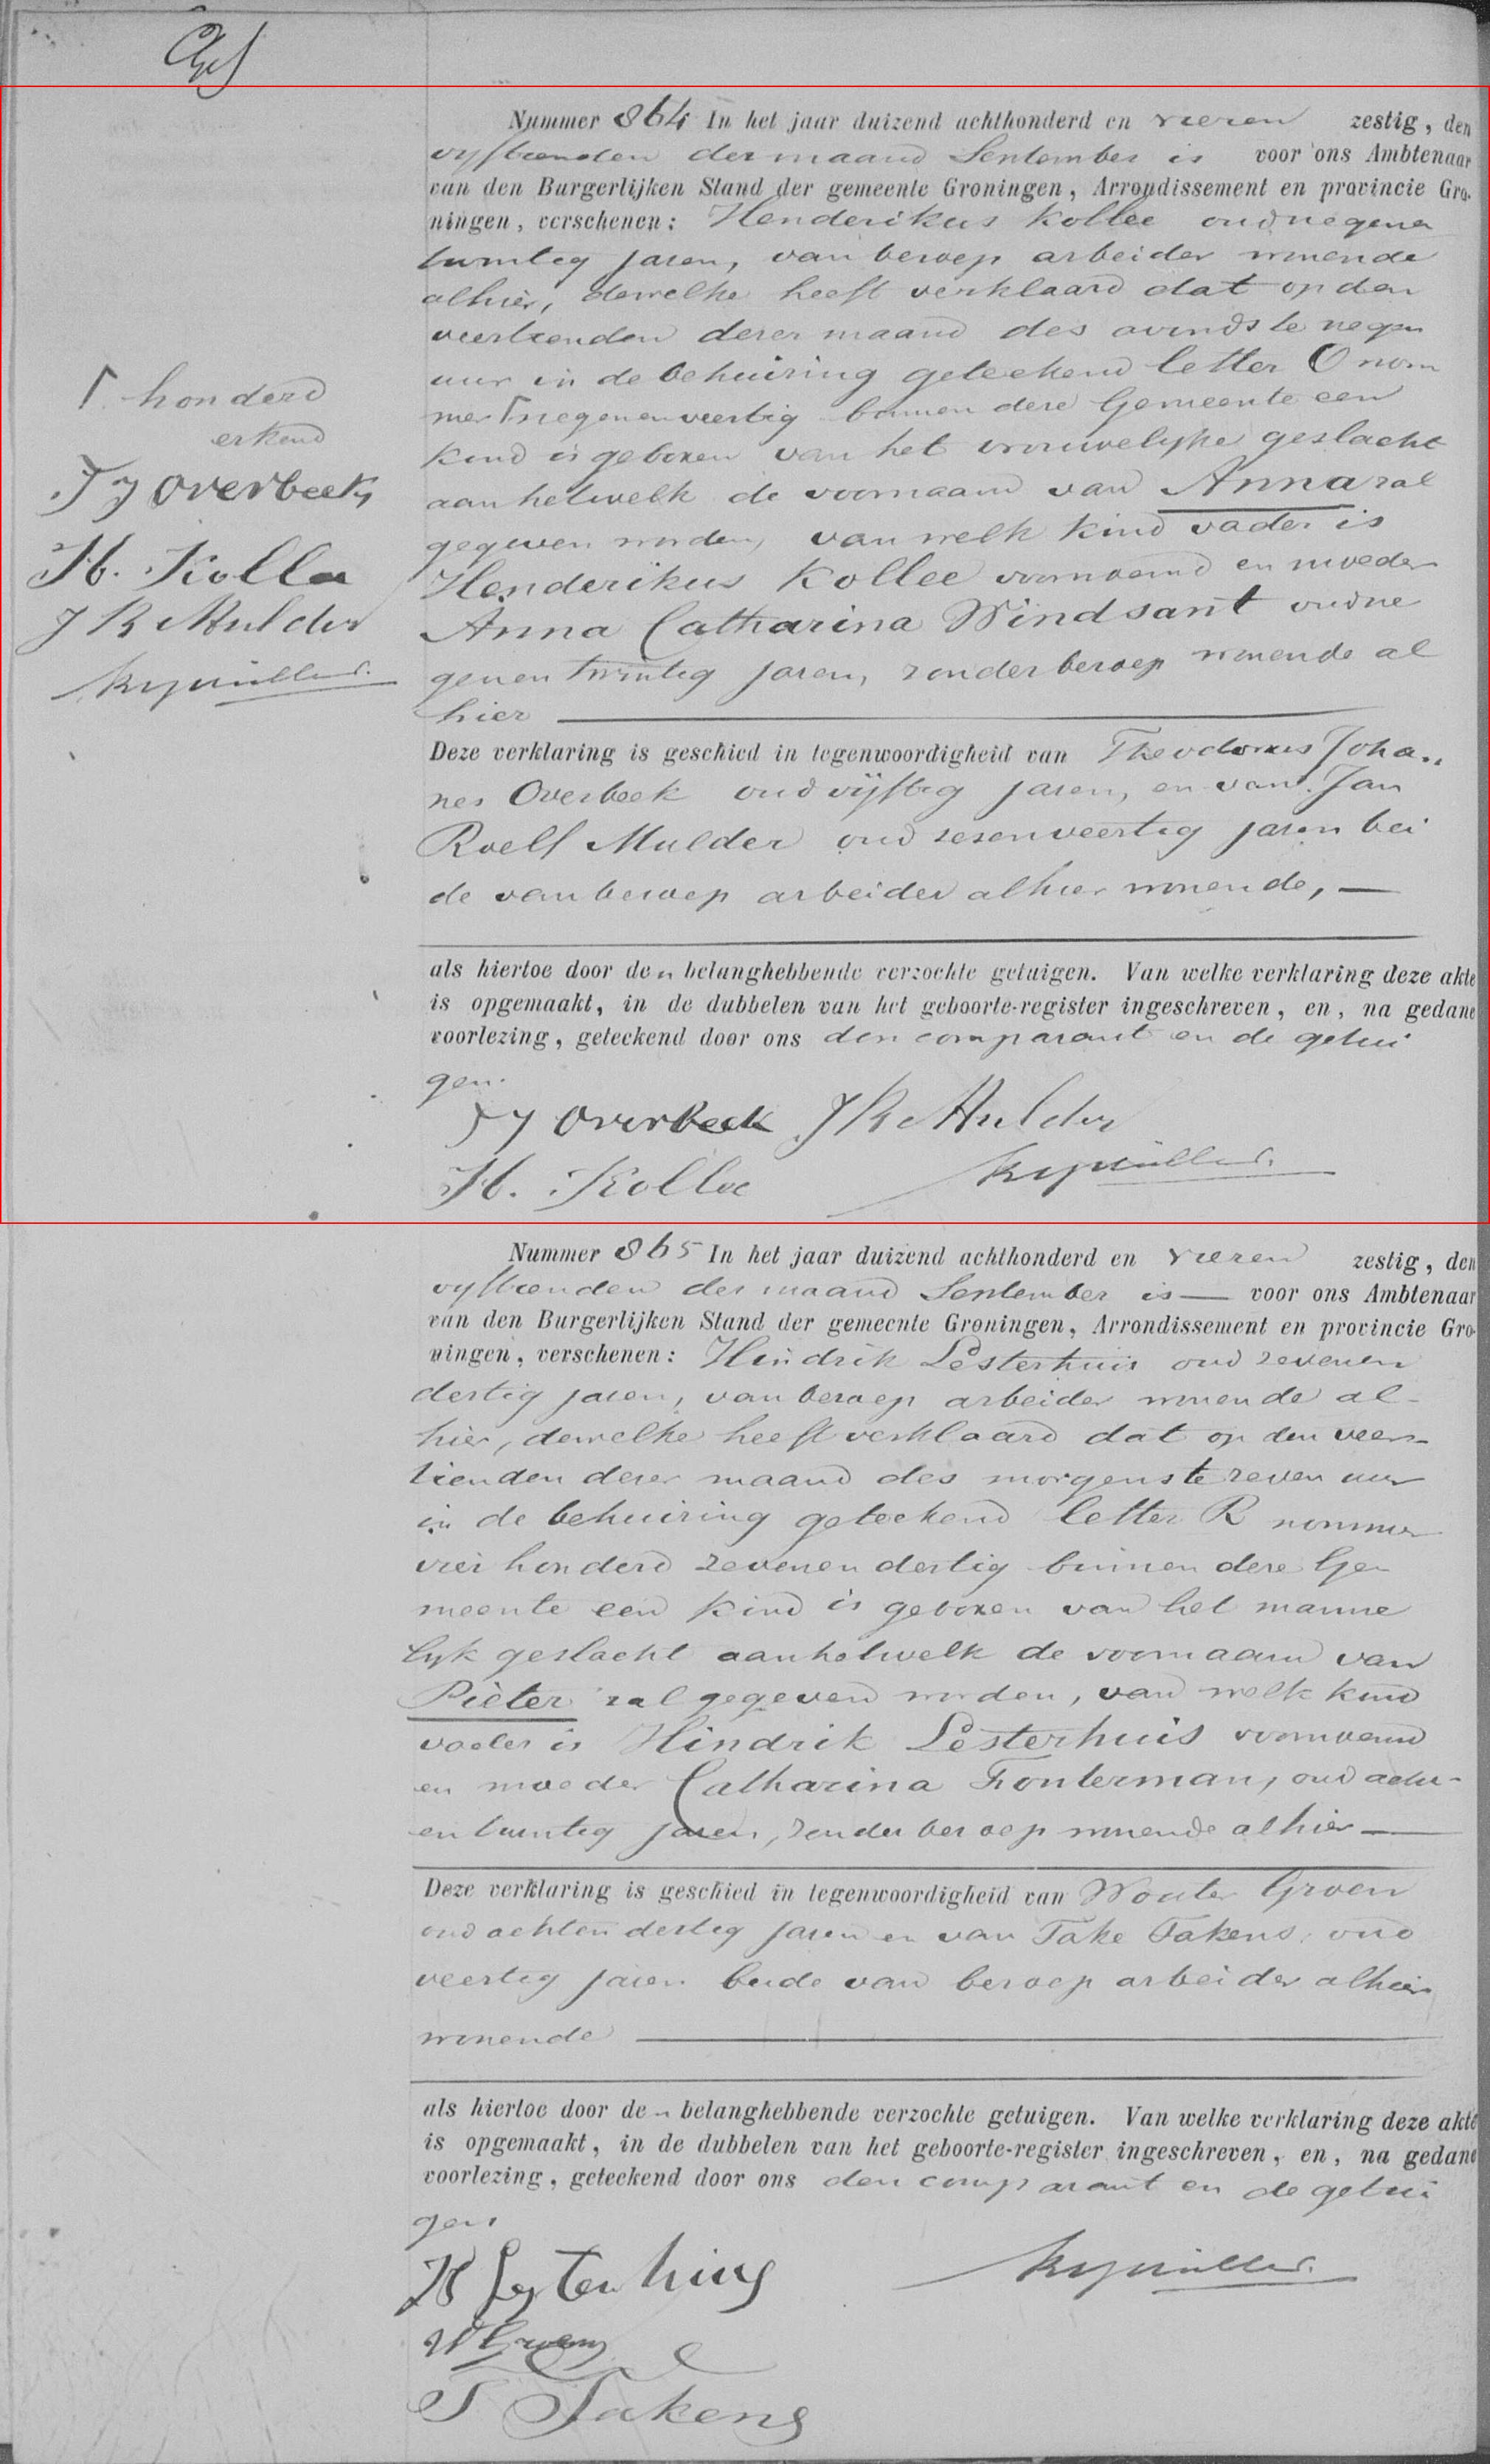 Nummer 864 In het jaar duizend achthonderd en vieren zestig, den
vyftienden der maand September is voor ons Ambtenaar
van den Burgerlijken Stand der gemeente Groningen, Arrondissement en provincie Gro-
ningen, verschenen: Henderikus Kollee oud negenen
twintig jaren, van beroep arbeider wonende
alhier, dewelke heeft verklaard dat op den
veertienden dezer maand des avonds te negen
uur in de behuizing geteekend letter O nom
mer ⌈negenenveertig binnen deze Gemeente een
kind is geboren van het vrouwelyke geslacht
aan hetwelk de voornaam van Anna zal
gegeven worden, van welk kind vader is
Henderikus Kollee voornoemd en moeder
Anna Catharina Windsant oud ne
genen twintig jaren, zonder beroep wonende al
hier
⌈ honderd
erkend
T J Overbeek
H. Kollee
J R Mulder
Deze verklaring is geschied in tegenwoordigheid van Theodorus Joha..
nes Overbeek oud vijftig jaren, en van Jan
Roelf Mulder oud zesenveertig jaren bei
de van beroep arbeider alhier wonende,
als hiertoe door den belanghebbende verzochte getuigen. Van welke verklaring deze akte
is opgemaakt, in de dubbelen van het geboorte-register ingeschreven, en, na gedane
voorlezing, geteekend door ons den comparant en de getui
gen.
T J Overbeek J R Mulder
H. Kollee
Nummer 865 In het jaar duizend achthonderd en vieren zestig, den
vyftienden der maand September is voor ons Ambtenaar
van den Burgerlijken Stand der gemeente Groningen, Arrondissement en provincie Gro-
ningen, verschenen: Hindrik Lesterhuis oud zevenen
dertig jaren, van beroep arbeider wonende al-
hier, dewelke heeft verklaard dat op den veer-
tienden dezer maand des morgens te zeven uur
in de behuizing geteekend letter R nommer
vier honderd zevenendertig binnen deze Ge
meente een kind is geboren van het manne
lyk geslacht aan hetwelk de voornaam van
Pieter zal gegeven worden, van welk kind
vader is Hindrik Lesterhuis voornoemd
en moeder Catharina Fonterman, oud acht-
en twintig jaren, zonder beroep wonende alhier
Deze verklaring is geschied in tegenwoordigheid van Wouter Groen
oud achtendertig jaren en van Take Takens oud
veertig jaren beide van beroep arbeider alhier
wonende
als hiertoe door den belanghebbende verzochte getuigen. Van welke verklaring deze akte
is opgemaakt, in de dubbelen van het geboorte-register ingeschreven, en, na gedane
voorlezing, geteekend door ons den comparant en de getui
gen
H Lesterhuis
W Groen
T Takens